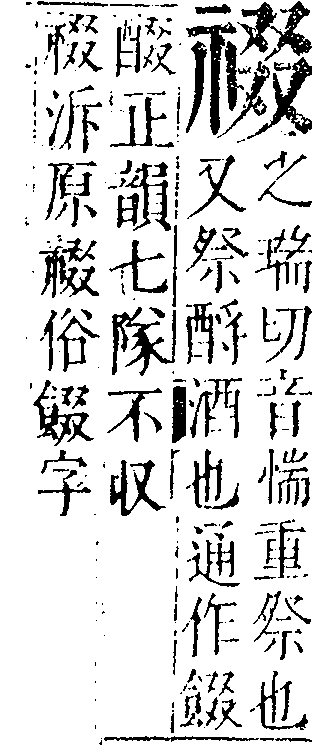 裰
之瑞切音惴重祭也
又祭酹酒也通作餟
醊正韻七隊不収
裰泝原裰俗餟字